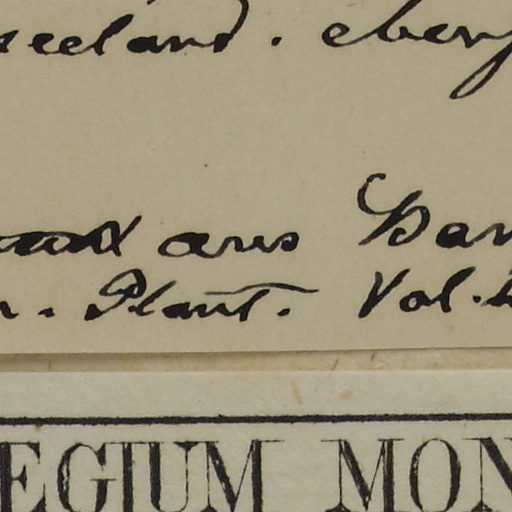 eeland. eben
aus Dan
. Plant. Vol.
EGIUM MON